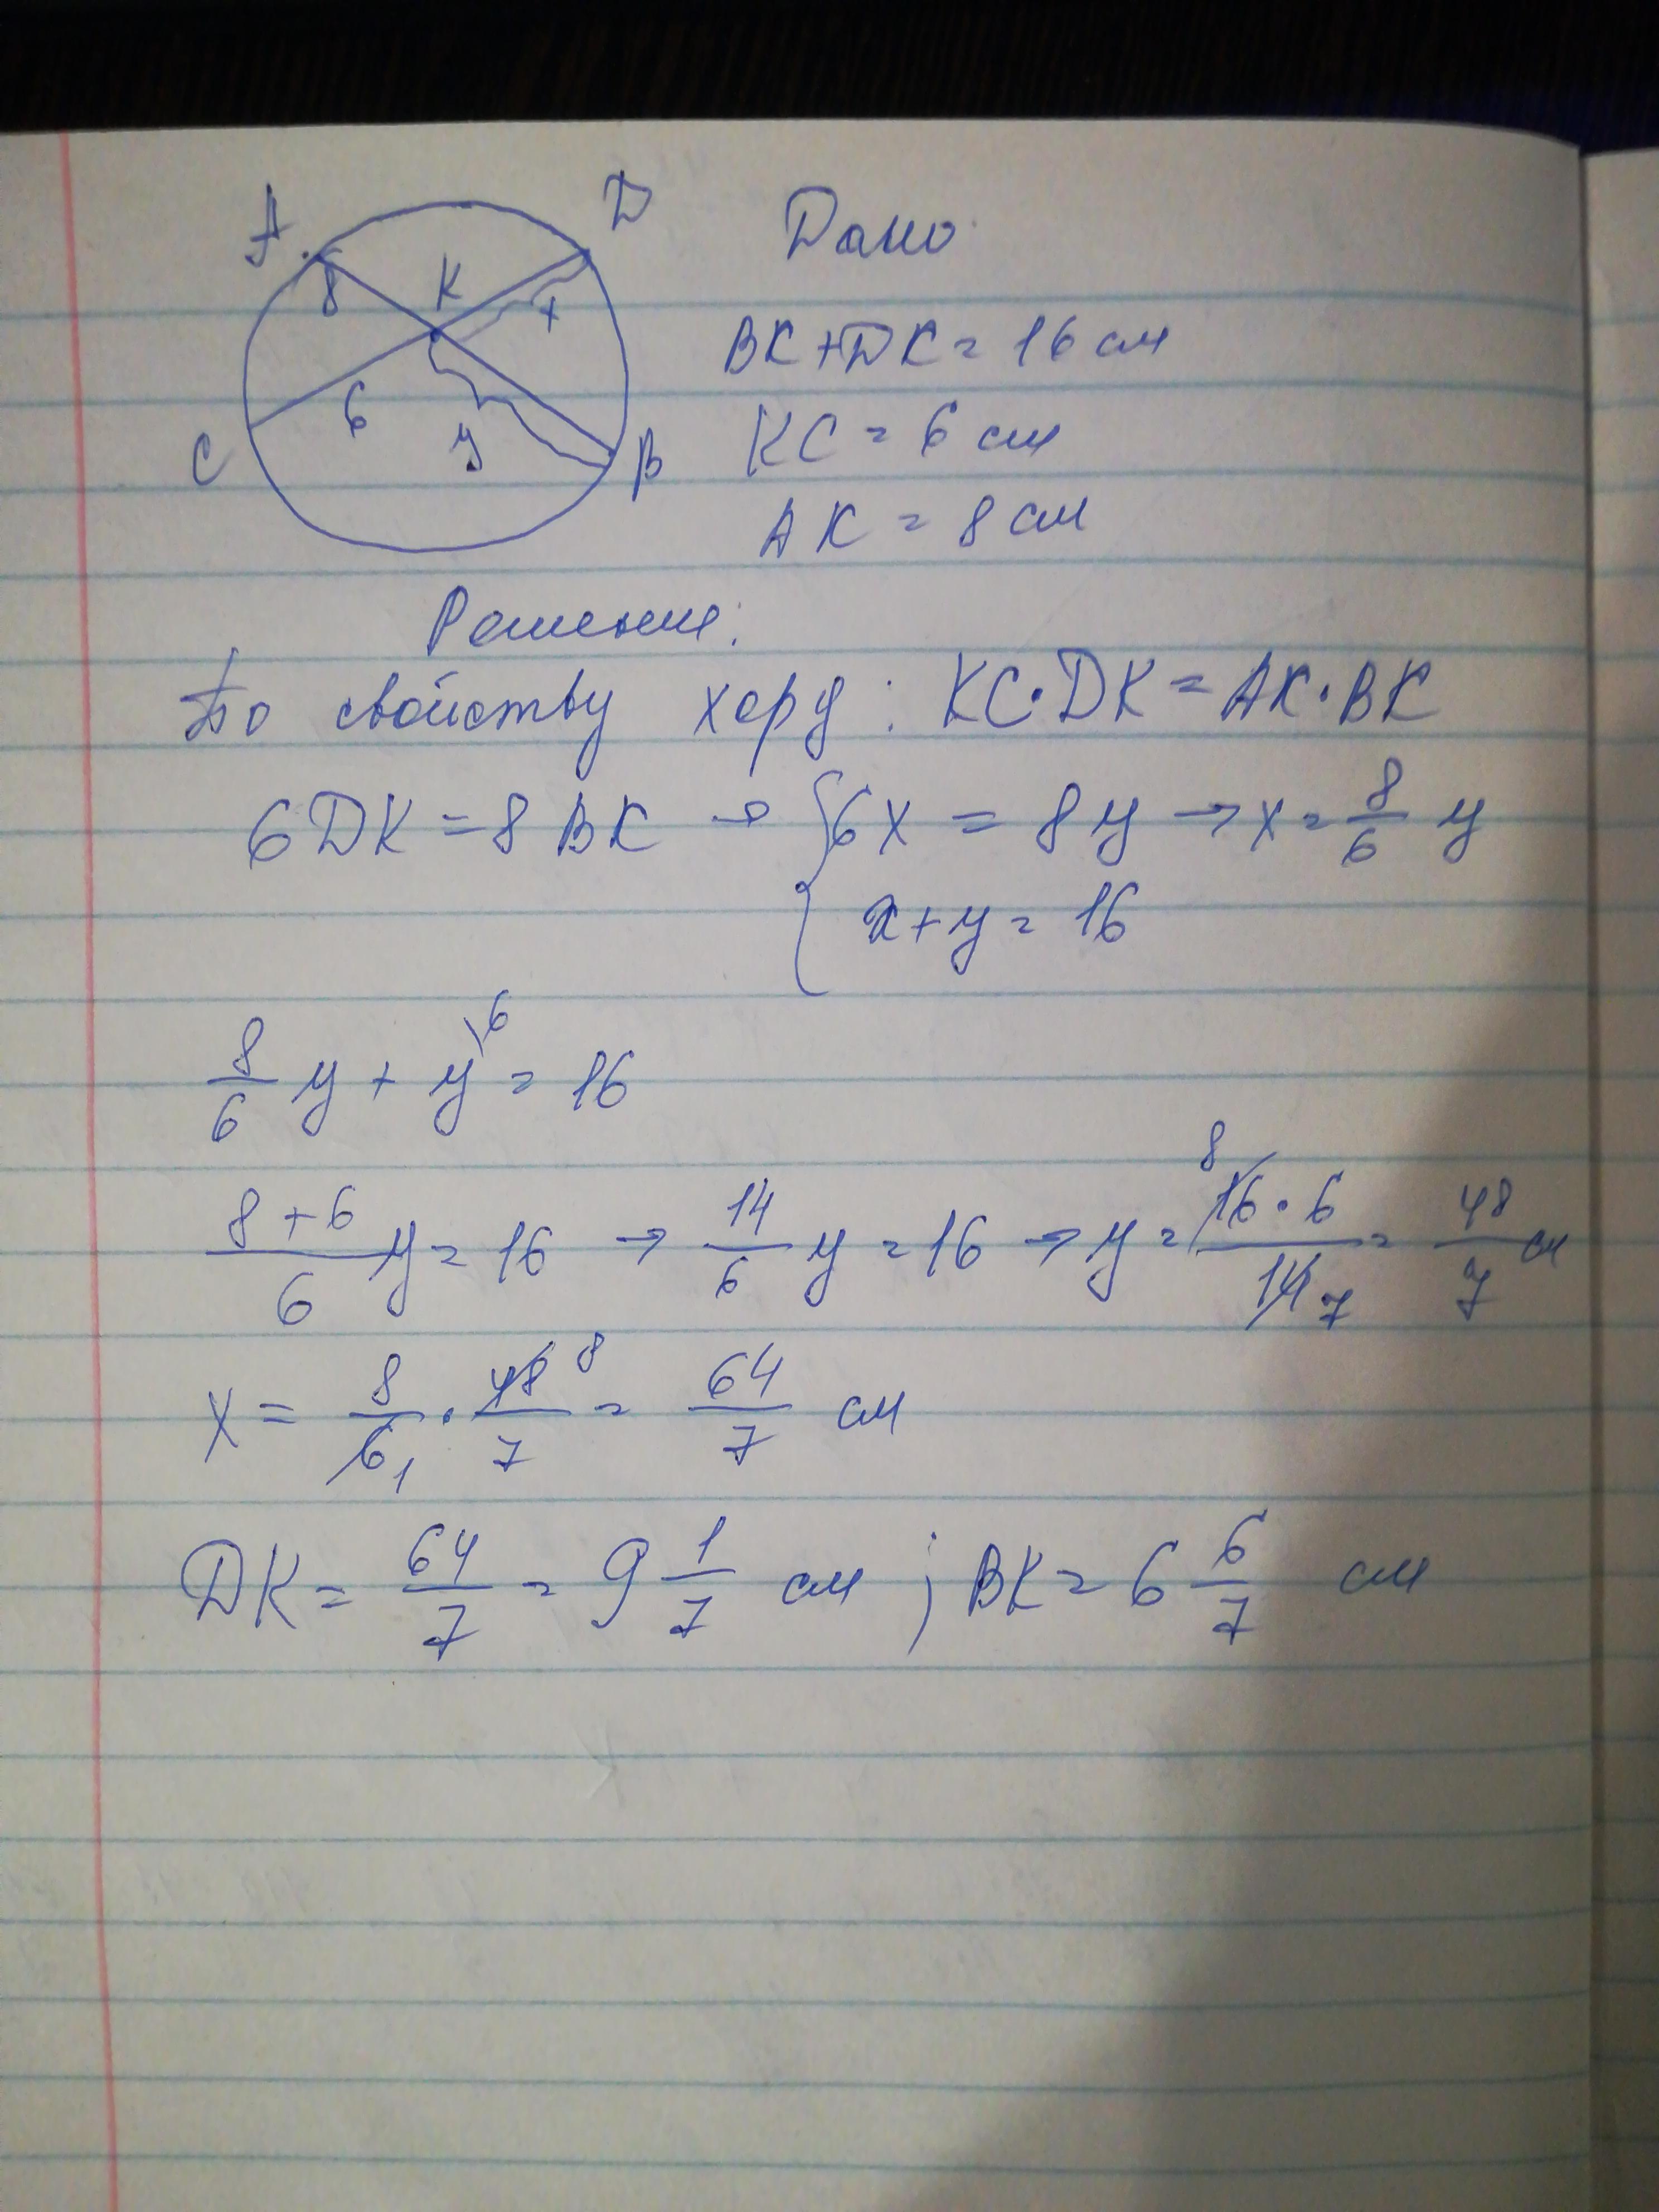 A D Дано
8 K x
BK+DK = 16 см
6 y
C B KC = 6 см
AK = 8 см
Решение:
По свойству хорд: KC·DK = AK·BK
6DK = 8BK → { 6x = 8y → x = 8/6 y
x+y = 16
8/6 y + y\6 = 16
8+6/6 y = 16 → 14/6 y = 16 → y = 8 16·6/14 7 = 48/7 см
x = 8/6 1 · 48 8/7 = 64/7 см
DK = 64/7 = 9 1/7 см ; BK = 6 6/7 см